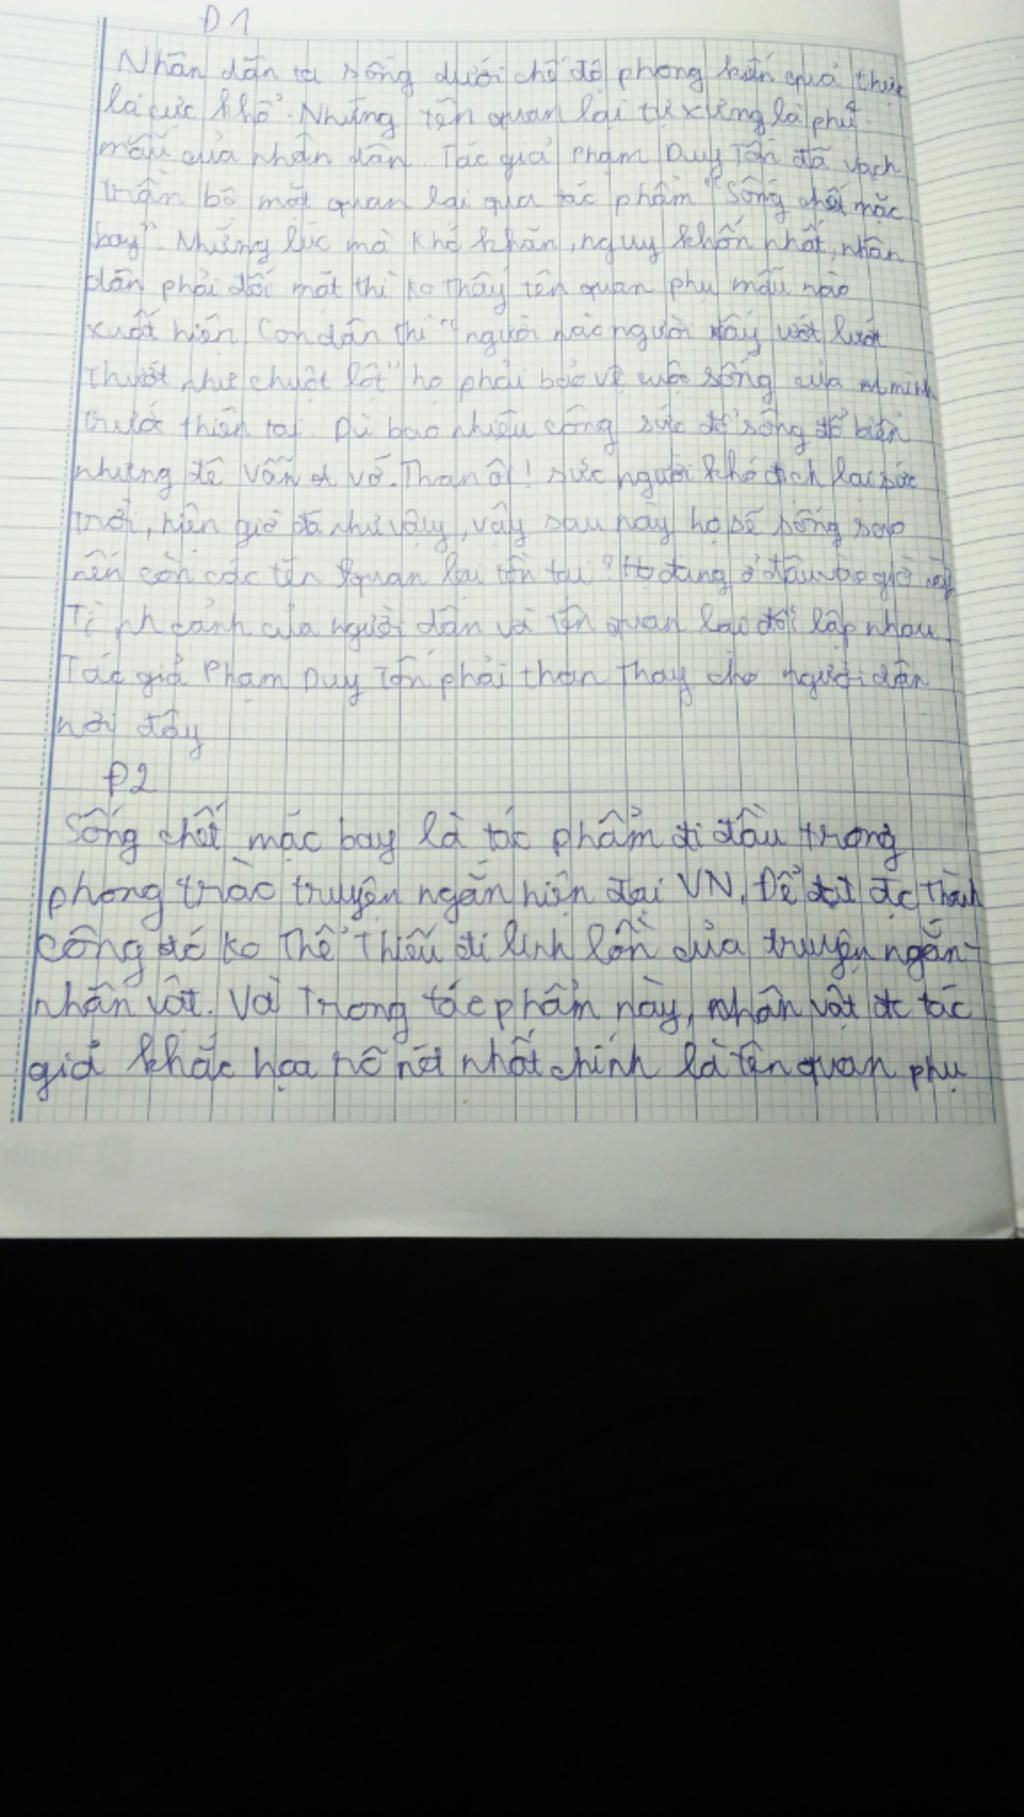 Đ1
Nhân dân ta sống dưới chế độ phong kiến quả thực
là cực khổ. Những tên quan lại tự xưng là phụ
mẫu của nhân dân. Tác giả Phạm Duy Tốn đã vạch
trần bộ mặt quan lại qua tác phẩm "Sống chết mặc
bay". Những lúc mà khó khăn, nguy khốn nhất, nhân
dân phải đối mặt thì ko thấy tên quan phụ mẫu nào
xuất hiện. Con dân thì "người nào người nấy ướt lướt
thướt như chuột lột" họ phải bảo vệ cuộc sống của mình
trước thiên tai. Dù bao nhiêu công sức đổ sông đổ biển
nhưng đê vẫn vỡ. Than ôi! sức người khó địch lại sức
trời, hiện giờ đã như vậy, vậy sau này họ sẽ sống sao
nên còn các tên quan lại tồn tại? Họ đang ở đâu giờ này
Tình cảnh của người dân và tên quan lại đối lập nhau
Tác giả Phạm Duy Tốn phải than thay cho người dân
nơi đây
Đ2
Sống chết mặc bay là tác phẩm đi đầu trong
phong trào truyện ngắn hiện đại VN. Để đạt đc thành
công đó ko thể thiếu đi linh hồn của truyện ngắn-
nhân vật. Và trong tác phẩm này, nhân vật đc tác
giả khắc họa rõ nét nhất chính là tên quan phụ